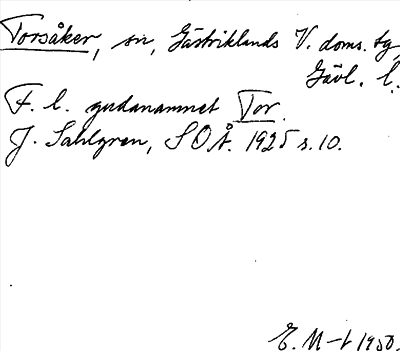 Torsåker, sn, Gästriklands V. doms. tg,
Gävl. l.
F. l. gudanamnet Tor.
J. Sahlgren, SOÅ. 1925 s. 10.
E. M-t 1950.